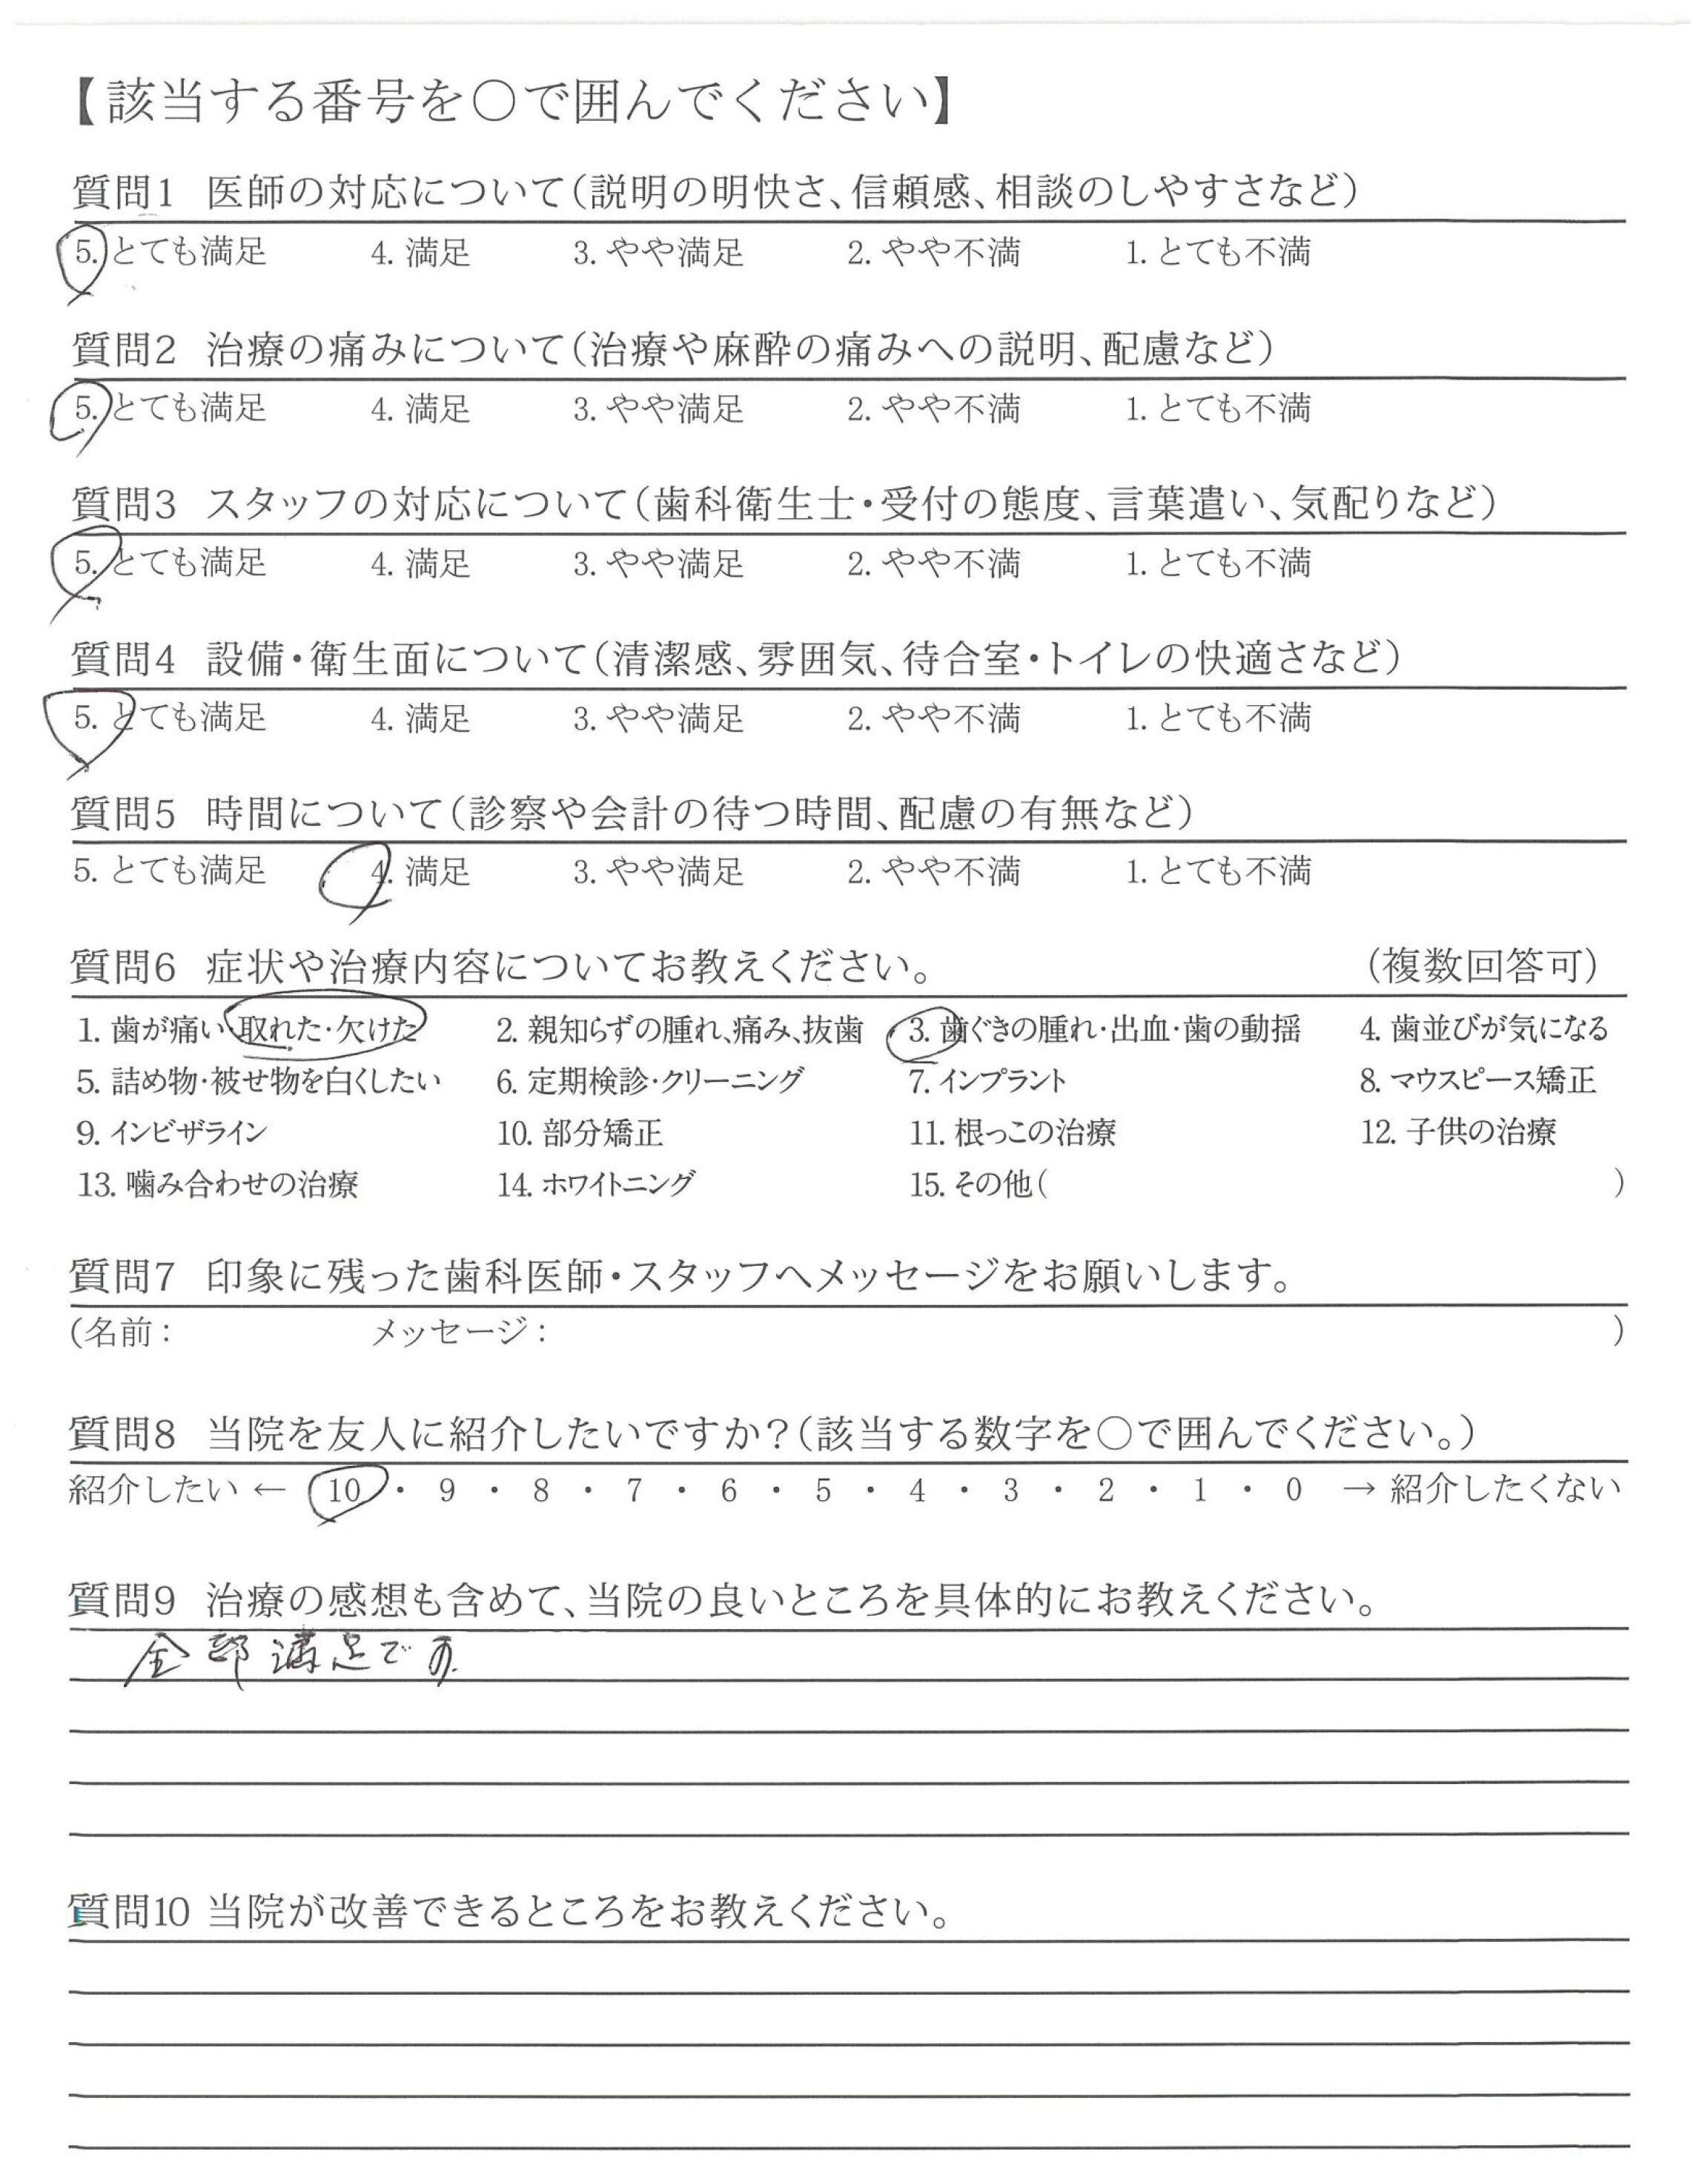 【該当する番号を〇で囲んでください】
質問1 医師の対応について（説明の明快さ、信頼感、相談のしやすさなど）
5. とても満足 4. 満足 3. やや満足 2. やや不満 1. とても不満
質問2 治療の痛みについて（治療や麻酔の痛みへの説明、配慮など）
5. とても満足 4. 満足 3. やや満足 2. やや不満 1. とても不満
質問3 スタッフの対応について（歯科衛生士・受付の態度、言葉遣い、気配りなど）
5. とても満足 4. 満足 3. やや満足 2. やや不満 1. とても不満
質問4 設備・衛生面について（清潔感、雰囲気、待合室・トイレの快適さなど）
5. とても満足 4. 満足 3. やや満足 2. やや不満 1. とても不満
質問5 時間について（診察や会計の待つ時間、配慮の有無など）
5. とても満足 4. 満足 3. やや満足 2. やや不満 1. とても不満
質問6 症状や治療内容についてお教えください。 （複数回答可）
1. 歯が痛い・取れた・欠けた 2. 親知らずの腫れ、痛み、抜歯 3. 歯ぐきの腫れ・出血・歯の動揺 4. 歯並びが気になる
5. 詰め物・被せ物を白くしたい 6. 定期検診・クリーニング 7. インプラント 8. マウスピース矯正
9. インビザライン 10. 部分矯正 11. 根っこの治療 12. 子供の治療
13. 噛み合わせの治療 14. ホワイトニング 15. その他（ ）
質問7 印象に残った歯科医師・スタッフへメッセージをお願いします。
（名前： メッセージ： ）
質問8 当院を友人に紹介したいですか？（該当する数字を〇で囲んでください。）
紹介したい ← 10 ・ 9 ・ 8 ・ 7 ・ 6 ・ 5 ・ 4 ・ 3 ・ 2 ・ 1 ・ 0 → 紹介したくない
質問9 治療の感想も含めて、当院の良いところを具体的にお教えください。
全部満足です.
質問10 当院が改善できるところをお教えください。